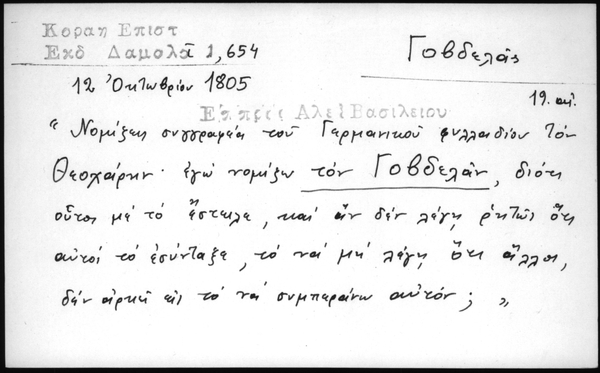 Κοραη Επιστ
Εκδ Δαμαλᾶ 1, 654
Γοβδελᾶς
12 Ὀκτωβρίου 1805
19. αἰ.
Επ πρὸς Αλεξ Βασιλειου
"Νομίζεις συγγραφέα τοῦ Γερμανικοῦ φυλλαδίου τὸν
Θεοχάρην· ἐγὼ νομίζω τὸν Γοβδελᾶν, διότι
οὗτος μὲ τὸ ἔστειλε, καὶ ἂν δὲν λέγῃ ῥητῶς ὅτι
αὐτὸς τὸ ἐσύνταξε, τὸ νὰ μὴ λέγῃ ὅτι ἄλλος,
δὲν ἀρκεῖ εἰς τὸ νὰ συμπεράνω αὐτόν; "